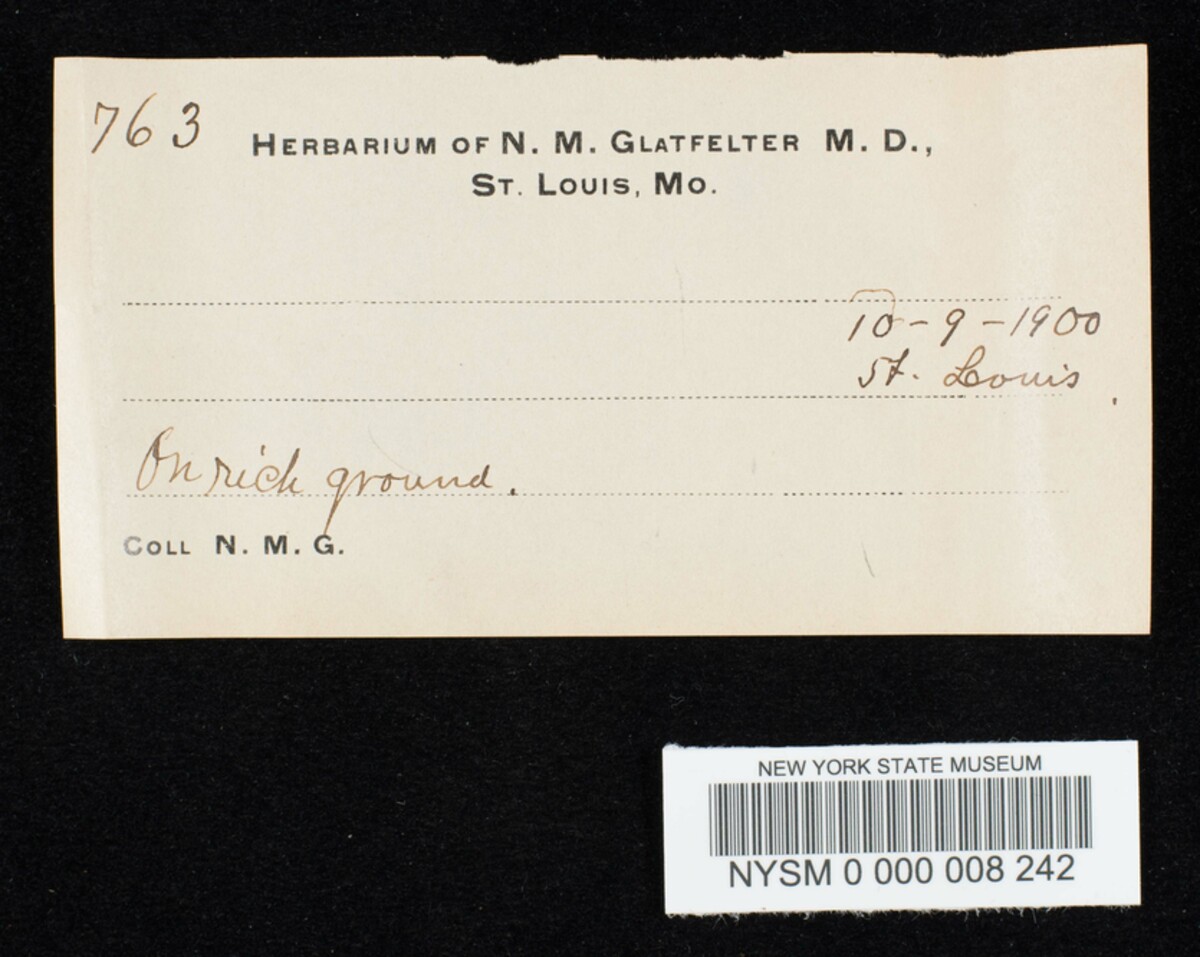 763
HERBARIUM OF N. M. GLATFELTER M. D.,
ST. LOUIS, MO.
10-9-1900
St. Louis
On rich ground.
COLL N. M. G.
NEW YORK STATE MUSEUM
NYSM 0 000 008 242